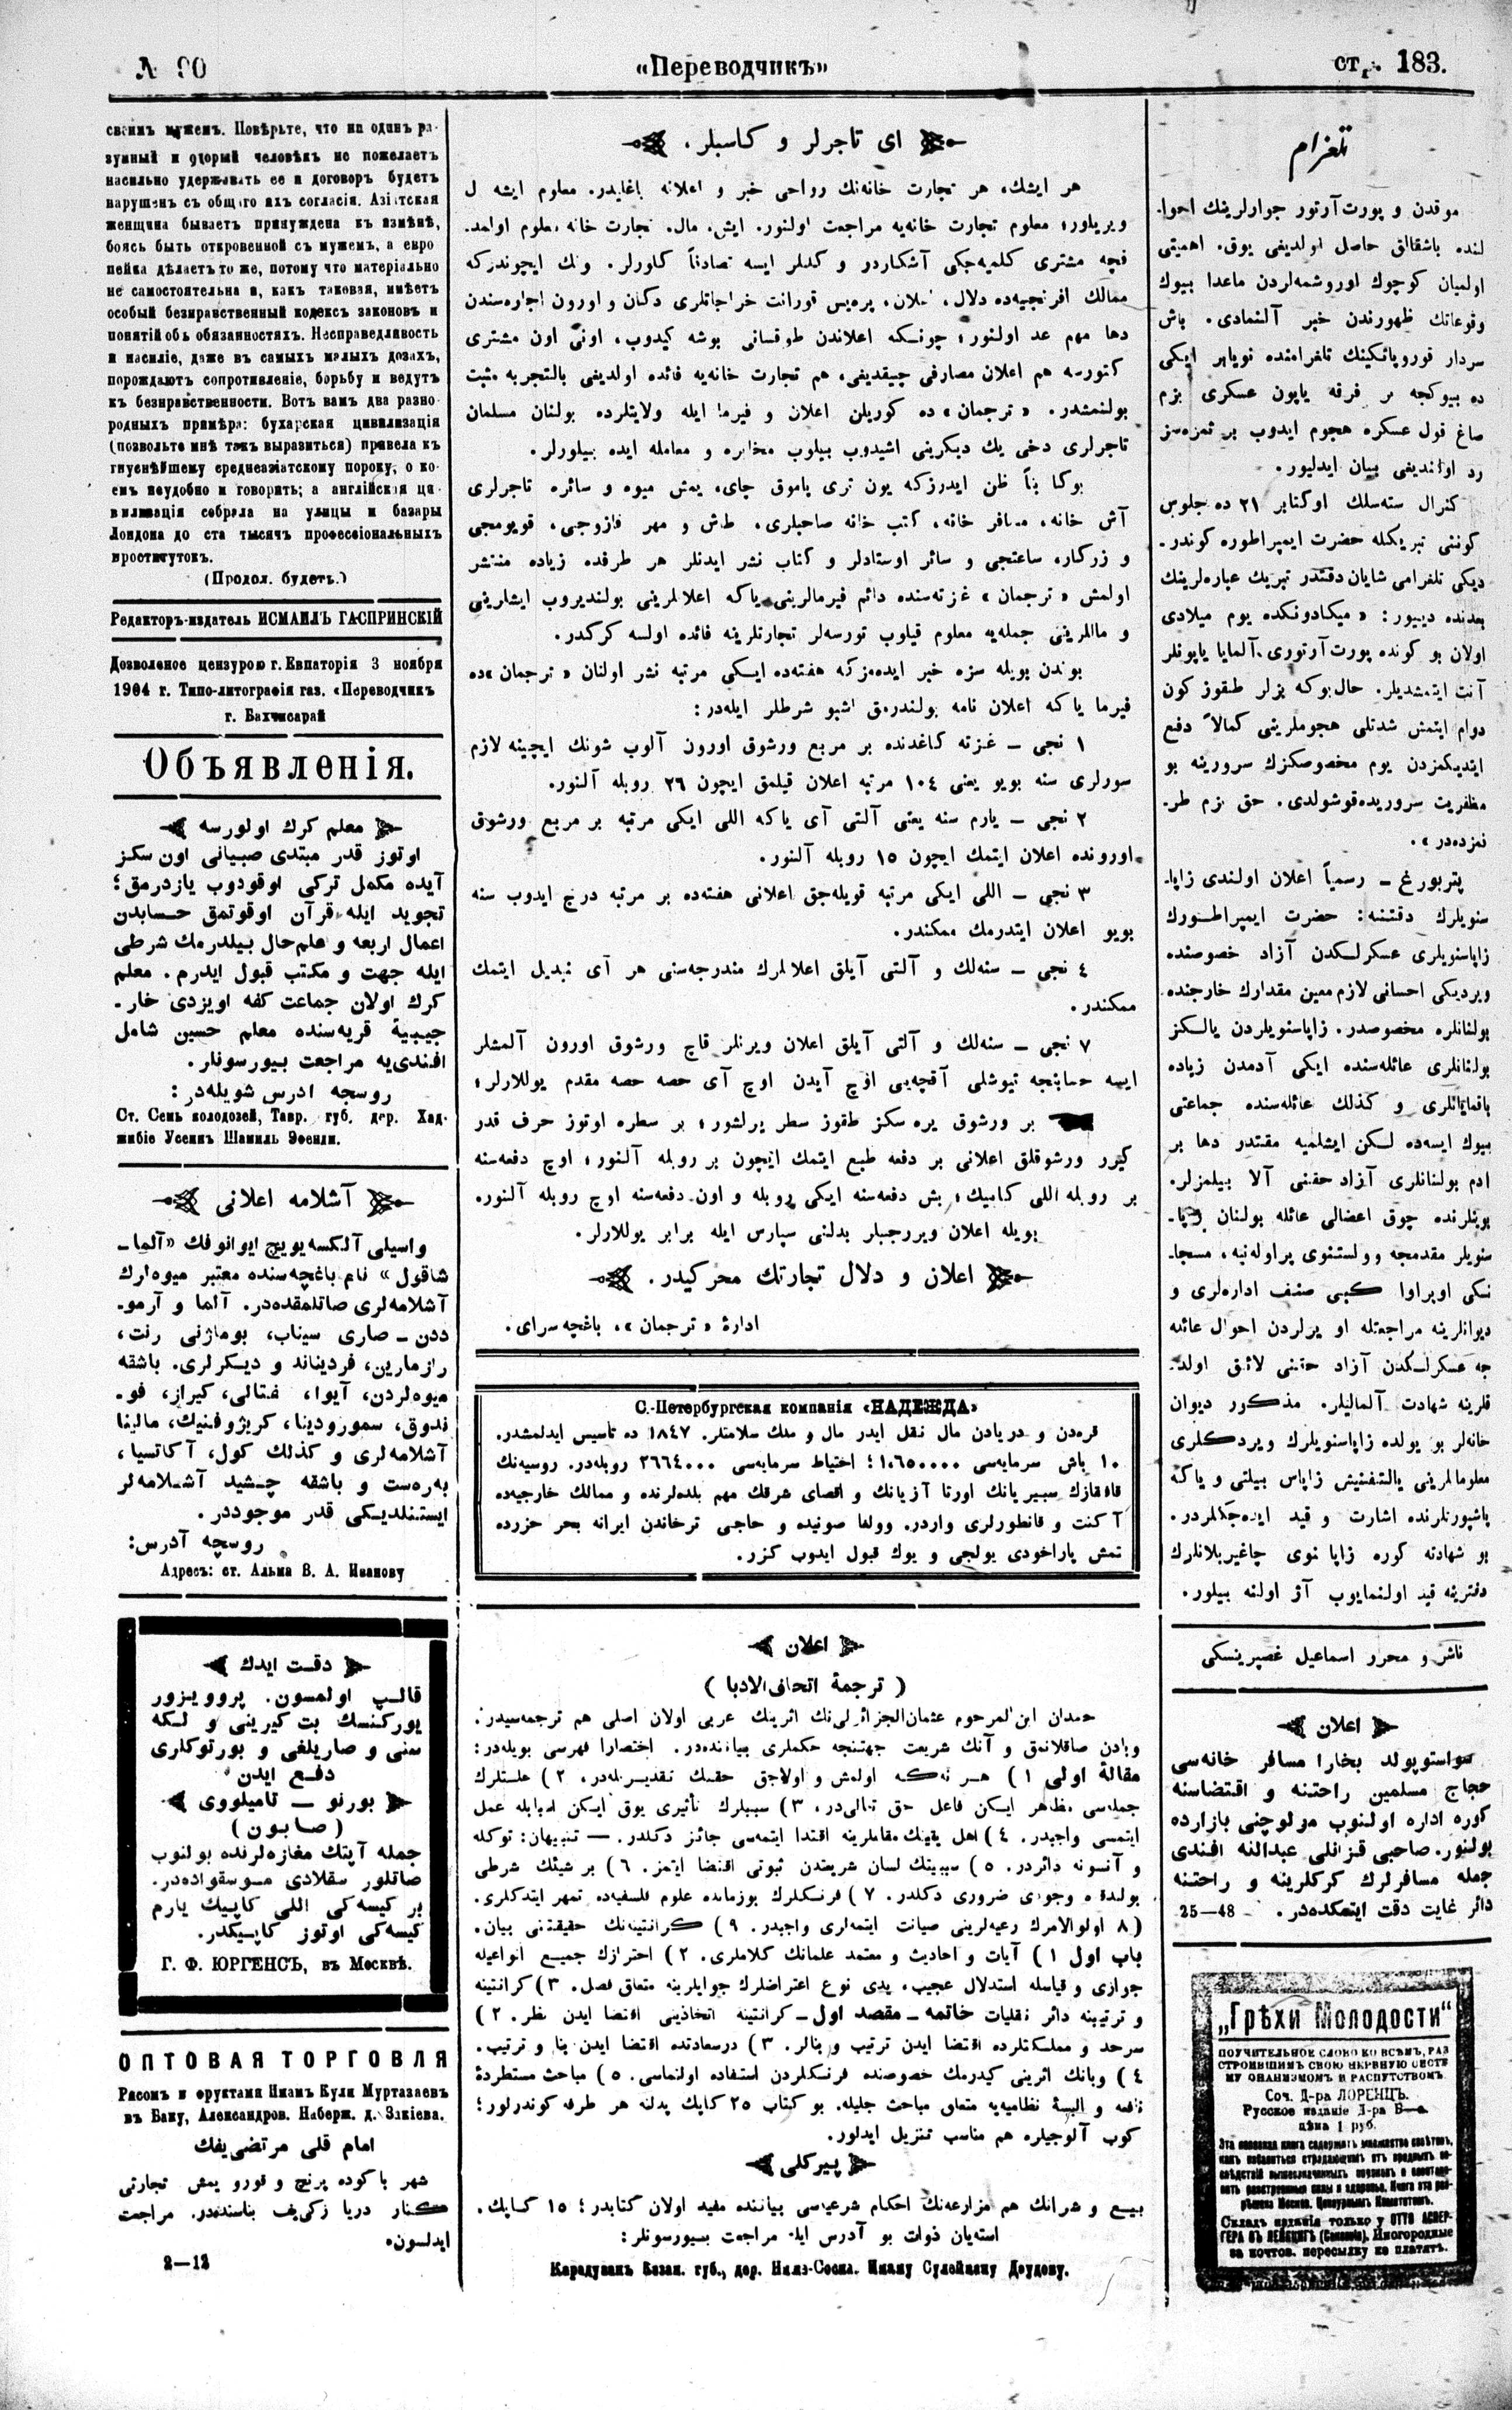 № 90
«Переводчикъ»
стр. 183.
своимъ мужемъ. Повѣрьте, что ни одинъ ра-
зумный и добрый человѣкъ не пожелаетъ
насильно удерживать ее и договоръ будетъ
нарушенъ съ общаго ихъ согласія. Азіатская
женщина бываетъ принуждена къ измѣнѣ,
боясь быть откровенной съ мужемъ, а евро
пейка дѣлаетъ то же, потому что матеріально
не самостоятельна и, какъ таковая, имѣетъ
особый безнравственный кодексъ законовъ и
понятій объ обязанностяхъ. Несправедливость
и насиліе, даже въ самыхъ малыхъ дозахъ,
порождаютъ сопротивленіе, борьбу и ведутъ
къ безнравственности. Вотъ вамъ два разно-
родныхъ примѣра: бухарская цивилизація
(позвольте мнѣ такъ выразиться) привела къ
гнуснѣйшему среднеазіатскому пороку, о ко-
емъ неудобно и говорить; а англійская ци-
вилизація собрала на улицы и базары
Лондона до ста тысячъ профессіональныхъ
проститутокъ.
(Продол. будетъ.)
Редакторъ-издатель ИСМАИЛЪ ГАСПРИНСКІЙ
Дозволеное цензурою г. Евпаторія 3 ноября
1904 г. Типо-литографія газ. «Переводчикъ
г. Бахчисарай
Объявленія.
معلم كرك اولورسه
اوتوز قدر مبتدى صبيانى اون سكز
آيده مكمل تركى اوقودوب يازدرمق؛
تجويد ايله قرآن اوقوتمق حسابدن
اعمال اربعه و علم‌حال بيلدرمك شرطى
ايله جهت و مكتب قبول ايدرم. معلم
كرك اولان جماعت كفه اويزدى خار-
جيبية قريه‌سنده معلم حسين شامل
افندى‌يه مراجعت بيورسونلر.
روسجه ادرس شويله‌در:
Ст. Семь колодозей, Тавр. губ. дер. Хад-
жибіе Усеинъ Шамиль Эфенди.
آشلامه اعلانى
واسيلى آلكسه‌يويچ ايوانوفك «آلما-
شاقول» نام باغچه‌سنده معتبر ميوه‌لرك
آشلامه‌لرى صاتلمقده‌در. آلما و آرمو-
ددن - صارى سيناب، بوماژنى رنت،
رازمارين، فرديناند و ديكرلرى. باشقه
ميوه‌لردن، آيوا، شفتالى، كيراز، فو-
ندوق، سمورودينا، كريژوفنيك، مالينا
آشلامه‌لرى و كذلك كول، آكاتسيا،
به‌ره‌ست و باشقه چشيد آشلامه‌لر
ايستنلديكى قدر موجوددر.
روسچه آدرس:
Адресъ: ст. Альма В. А. Иванову
دقت ايدك
قالپ اولمسون. پروويزور
يوركنسك بت كيرينى و لكه
سنى و صاريلغى و بورتوكلرى
دفع ايدن
بورنو — تاميلووى
(صابون)
جمله آپتك مغازه‌لرنده بولنوب
صاتلور سقلادى موسقواده‌در.
بر كيسه‌كى اللى كاپيك يارم
كيسه‌كى اوتوز كاپيكدر.
Г. Ф. ЮРГЕНСЪ, въ Москвѣ.
ОПТОВАЯ ТОРГОВЛЯ
Рисомъ и фруктами Имамъ Кули Муртазаевъ
въ Баку, Александров. Набереж. д. Закіева.
امام قلى مرتضى‌يفك
شهر باكوده پرنج و قورو يمش تجارتى
كنار دريا زكى‌يف بناسنده‌در. مراجعت
ايدلسون.
2—12
اى تاجرلر و كاسبلر.
هر ايشك، هر تجارت خانه‌نك رواجى خبر و اعلانه باغليدر. معلوم ايشه ل
ويريلور، معلوم تجارت خانه‌يه مراجعت اولنور. ايش، مال، تجارت خانه معلوم اولمد.
قچه مشترى كلميه‌جكى آشكاردر و كلدلر ايسه تصادفاً كلورلر. ونك ايچوندركه
ممالك افرنجيه‌ده دلال، اعلان، پريس قورانت خراجاتلرى دكان و اورون اجاره‌سندن
دها مهم عد اولنور؛ چونكه اعلاندن طوقسانى بوشه كيدوب، اونى اون مشترى
كتورسه هم اعلان مصارفى چيقديغى، هم تجارت خانه‌يه فائده اولديغى بالتجربه مثبت
بولنمشدر. «ترجمان» ده كوريلن اعلان و فيرما ايله ولايتلرده بولنان مسلمان
تاجرلرى دخى يك ديكرينى اشيدوب بيلوب مخابره و معامله ايده بيلورلر.
بوكا بناً ظن ايدرزكه يون ترى پاموق چاى، يمش ميوه و سائره تاجرلرى
آش خانه، مسافر خانه، كتب خانه صاحبلرى، طاش و مهر قازوجى، قويومجى
و زركار، ساعتجى و سائر اوستادلر و كتاب نشر ايدنلر هر طرفده زياده منتشر
اولمش «ترجمان» غزته‌سنده دائم فيرمالرينى ياكه اعلانلرينى بولنديروب ايشلرينى
و ماللرينى جمله‌يه معلوم قيلوب تورسه‌لر تجارتلرينه فائده اولسه كركدر.
بوندن بويله سزه خبر ايده‌مزكه هفته‌ده ايكى مرتبه نشر اولنان «ترجمان»ده
فيرما ياكه اعلان نامه بولندرمق اشبو شرطلر ايله‌در:
١ نجى — غزته كاغدنده بر مربع ورشوق اورون آلوب شونك ايچينه لازم
سوزلرى سنه بويو يعنى ١٠٤ مرتبه اعلان قيلمق ايچون ٢٦ روبله آلنور.
٢ نجى — يارم سنه يعنى آلتى آى ياكه اللى ايكى مرتبه بر مربع ورشوق
اورونده اعلان ايتمك ايچون ١٥ روبله آلنور.
٣ نجى — اللى ايكى مرتبه قويله‌جق اعلانى هفته‌ده بر مرتبه درج ايدوب سنه
بويو اعلان ايتدرمك ممكندر.
٤ نجى — سنه‌لك و آلتى آيلق اعلانلرك مندرجه‌سنى هر آى تبديل ايتمك
ممكندر.
٧ نجى — سنه‌لك و آلتى آيلق اعلان ويرنلر قاچ ورشوق اورون آلمشلر
ايسه حسابنجه تيوشلى آقچه‌يى اوچ آيدن اوچ آى حصه حصه مقدم يوللارلر؛
بر ورشوق يره سكز طقوز سطر يرلشور؛ بر سطره اوتوز حرف قدر
كيرر ورشوقلق اعلانى بر دفعه طبع ايتمك ايچون بر روبله آلنور؛ اوچ دفعه‌سنه
بر روبله اللى كاپيك؛ بش دفعه‌سنه ايكى روبله و اون دفعه‌سنه اوچ روبله آلنور.
بويله اعلان ويررجيلر بدلنى سپارس ايله برابر يوللارلر.
اعلان و دلال تجارتك محركيدر.
ادارۀ «ترجمان»، باغچه سراى.
С.-Петербургская компанія «НАДЕЖДА»
قره‌دن و دريادن مال نقل ايدر مال و ملك سلامتلر. ١٨٤٧ ده تأسيس ايدلمشدر.
١٠ باش سرمايه‌سى ١٠٦٥٠٠٠٠؛ احتياط سرمايه‌سى ٢٦٦٤٠٠٠ روبله‌در. روسيه‌نك
قافقازك سبيريانك اورتا آزيانك و اقصاى شرقك مهم بلده‌لرنده و ممالك خارجيه‌ده
آكنت و قانطورلرى واردر. وولغا صوينده و حاجى ترخاندن ايرانه بحر حزرده
تمش پاراخودى يولجى و يوك قبول ايدوب كزر.
اعلان
(ترجمۀ اتحاف الادبا)
حمدان ابن المرحوم عثمان الجزائرلى‌نك اثرينك عربى اولان اصلى هم ترجمه‌سيدر.
وبادن صاقلانمق و آنك شريعت جهتنجه حكملرى بياننده‌در. اختصارا فهرسى بويله‌در:
مقالۀ اولى ١) هر نه‌كه اولمش و اولاجق حقك تقديريله‌در. ٢) علتلرك
جمله‌سى مظاهر ايكن فاعل حق تعالى‌در. ٣) سببلرك تأثيرى يوق ايكن اسبابله عمل
ايتمسى واجبدر. ٤) اهل يقينك مقاملرينه اقتدا ايتمه‌سى جائز دكلدر. — تنبيهان: توكله
و آنسونه دائردر. ٥) سببيتك لسان شريعتدن ثبوتى اقتضا ايتمز. ٦) بر شيئك شرطى
بولدقده وجودى ضرورى دكلدر. ٧) فرنكلرك بوزمانده علوم فلسفيه‌ده تمهر ايتدكلرى.
(٨ اولوالامرك رعيه‌لرينى صيانت ايتمه‌لرى واجبدر. ٩) كرانتينه‌نك حقيقتنى بيان.
باب اول ١) آيات و احاديث و معتمد علمانك كلاملرى. ٢) احترازك جميع انواعيله
جوازى و قياسله استدلال عجيب، يدى نوع اعتراضلرك جوابلرينه متعلق فصل. ٣) كرانتينه
و ترتيبنه دائر نقليات خاتمه - مقصد اول - كرانتينه اتخاذينى اقتضا ايدن نظر. ٢)
سرحد و مملكتلرده اقتضا ايدن ترتيب و بنالر. ٣) درسعادتده اقتضا ايدن بنا و ترتيب.
٤) وبانك اثرينى كيدرمك خصوصنده فرنكلردن استفاده اولنماسى. ٥) مباحث مستطردۀ
نافعه و البسۀ نظاميه‌يه متعلق مباحث جليله. بو كتاب ٢٥ كاپك بدلنه هر طرفه كوندرلور؛
كوب آلوجيلره هم مناسب تنزيل ايدلور.
پيركلى
بيع و شرانك هم مزارعه‌نك احكام شرعيه‌سى بياننده مفيد اولان كتابدر؛ ١٥ كاپك.
استه‌يان ذوات بو آدرس ايله مراجعت بيورسونلر:
Карадуванъ Казан. губ., дер. Имамъ Сулейману Даудову.
تلغرام
موقدن و پورت آرتور جوارلرينك احوا-
لنده باشقالق حاصل اولديغى يوق. اهميتى
اولميان كوچوك اوروشمه‌لردن ماعدا بيوك
وقوعاتك ظهورندن خبر آلنمادى. باش
سردار قوروپاتكينك تلغرامنده نويابر ايكى
ده بيوكجه بر فرقه ياپون عسكرى بزم
صاغ قول عسكره هجوم ايدوب بر ثمره‌سز
رد اولنديغى بيان ايدليور.
كنرال سته‌سلك اوكتابر ٢١ ده جلوس
كوننى تبريكله حضرت ايمپراطوره كوندر-
ديكى تلغرامى شايان دقتدر تبريك عباره‌لرينك
بعدنده ديييور: «ميكادونكده يوم ميلادى
اولان بو كونده پورت آرتورى آلمايا ياپونلر
آنت ايتمشديلر. حال‌بوكه بزلر طقوز كون
دوام ايتمش شدتلى هجوملرينى كمالاً دفع
ايتديكمزدن يوم مخصوصكزك سرورينه بو
مظفريت سروريده قوشولدى. حق بزم طر-
فمزده‌در».
پتربورغ — رسمياً اعلان اولندى زاپا-
سنويلرك دقتنه: حضرت ايمپراطورك
زاپاسنويلرى عسكرلكدن آزاد خصوصنده
ويرديكى احسانى لازم معين مقدارك خارجنده
بولنانلره مخصوصدر. زاپاسنويلردن يالكز
بولنانلرى عائله‌سنده ايكى آدمدن زياده
باقمايانلرى و كذلك عائله‌سنده جماعتى
بيوك ايسه‌ده لكن ايشلميه مقتدر دها بر
ادم بولنانلرى آزاد حقنى آلا بيلمزلر.
بونلرنده چوق اعضالى عائله بولنان زاپا-
سنويلر مقدمجه وولستنوى پراوله‌نيه، مسجا-
نسكى اوپراوا كبى صنف اداره‌لرى و
ديوانلرينه مراجعتله او يرلردن احوال عائله
جه عسكرلكدن آزاد حقنى لائق اولد-
قلرينه شهادت آلماليلر. مذكور ديوان
خانه‌لر بو يولده زاپاسنويلرك ويردكلرى
معلوماتلرينى بالتفتيش زاپاس بيلتى و ياكه
پاشپورتلرنده اشارت و قيد ايده‌جكلردر.
بو شهادته كوره زاپاسنوى چاغيريلانلرك
دفترينه قيد اولنمايوب آزاد اولنه بيلور.
ناشر و محرر اسماعيل غصپرينسكى
اعلان
سواستوپولد بخارا مسافر خانه‌سى
حجاج مسلمين راحتنه و اقتضاسنه
كوره اداره اولنوب مولوچنى بازارده
بولنور. صاحبى قزانلى عبدالله افندى
جمله مسافرلرك كركلرينه و راحتنه
دائر غايت دقت ايتمكده‌در. 25—48
„Грѣхи Молодости“
ПОУЧИТЕЛЬНОЕ СЛОВО КО ВСѢМЪ, РАЗ
СТРОИВШИМЪ СВОЮ НЕРВНУЮ СИСТЕ
МУ ОНАНИЗМОМЪ И РАСПУТСТВОМЪ
Соч. Д-ра ЛОРЕНЦЪ.
Русское изданіе Д-ра В—а.
цѣна 1 руб.
Складъ изданія только у ОТТО АСПЕР-
ГЕРА ВЪ ЛЕЙПЦИГ (Саксонія). Иногородные
за почтов. пересылку не платятъ.